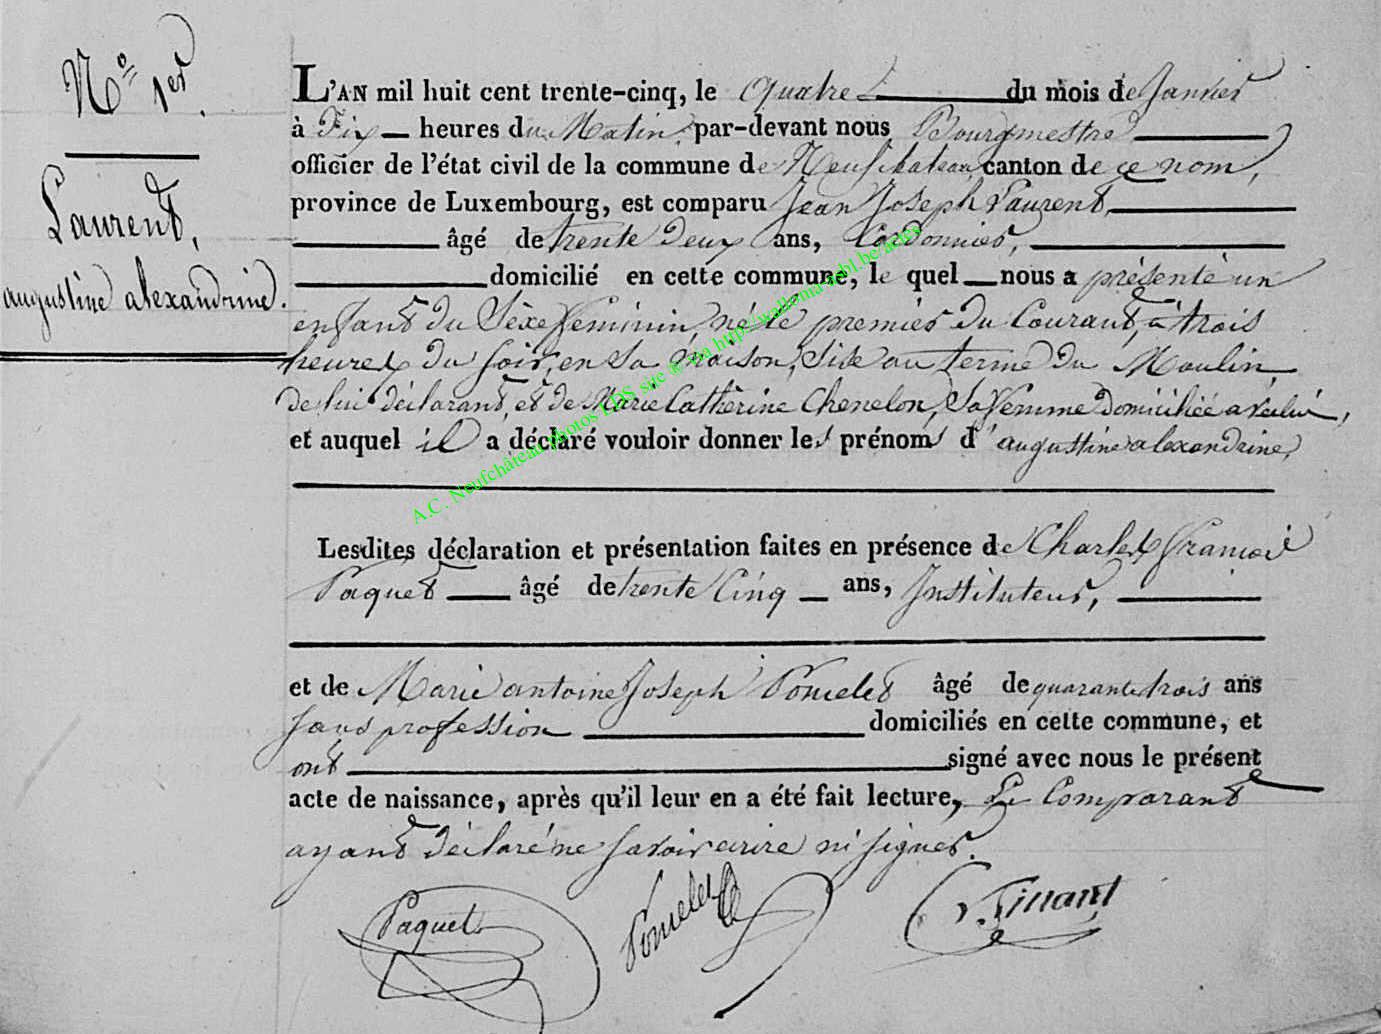 N° 1er.
Laurent,
augustine alexandrine.
L'AN mil huit cent trente-cinq, le quatre du mois de Janvier
à Dix heures du Matin, par-devant nous Bourgmestre
officier de l'état civil de la commune de Neufchateau, canton de ce nom,
province de Luxembourg, est comparu Jean Joseph Laurent,
âgé de trente Deux ans, Cordonnier,
domicilié en cette commune, le quel nous a présenté un
enfant du Sèxe feminin, né le premier du Courant, à trois
heures du soir, en sa maison, Sise au terme du Moulin,
de lui déclarant, et de Marie Cathèrine Chenelon, Sa femme domiciliée avec lui,
et auquel il a déclaré vouloir donner les prénoms d'augustine alexandrine,
Lesdites déclaration et présentation faites en présence de Charles François
Paquet âgé de trente Cinq ans, Instituteur,
et de Marie antoine Joseph Poncelet âgé de quarante trois ans
sans profession domiciliés en cette commune, et
ont signé avec nous le présent
acte de naissance, après qu'il leur en a été fait lecture, Le Comparant
ayant déclaré ne savoir ecrire ni signer.
Paquet Poncelet
A.C. Neufchâteau photos LDS site © via http://wallonia-asbl.be/actes